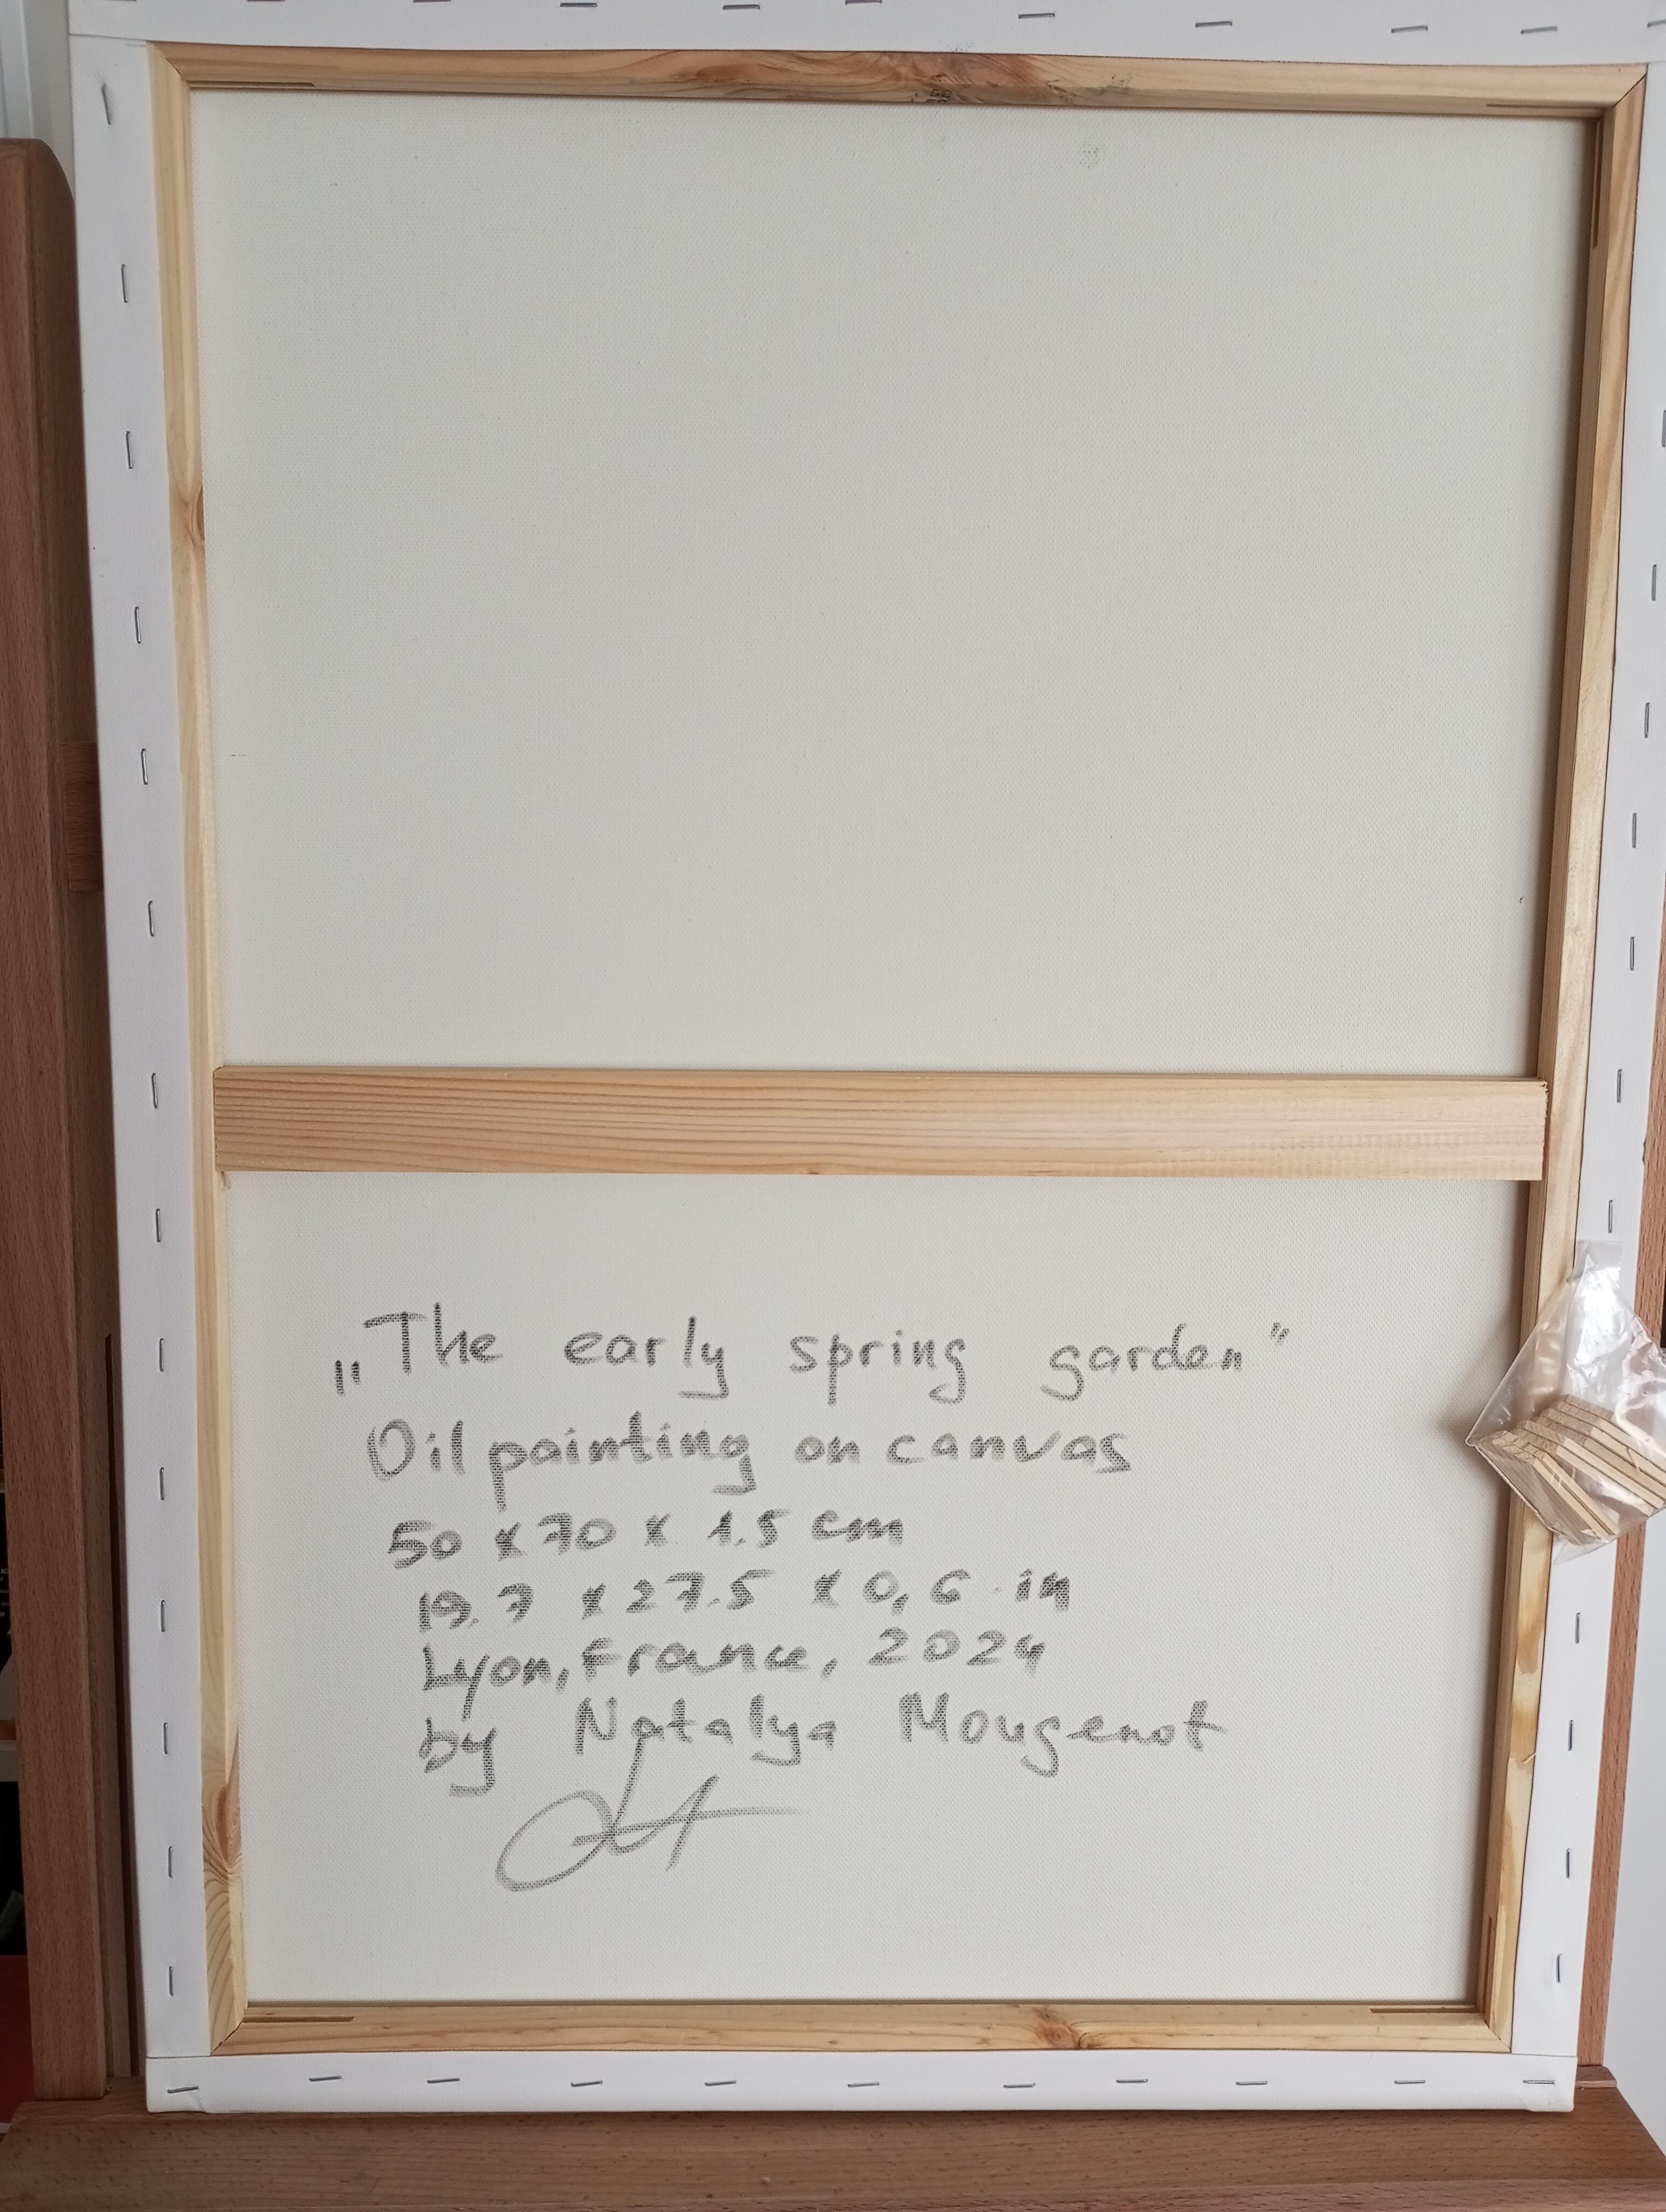 „The early spring garden"
Oil painting on canvas
50 x 70 x 1.5 cm
19.7 x 27.5 x 0,6 in
Lyon, France, 2024
by Natalya Mougenot